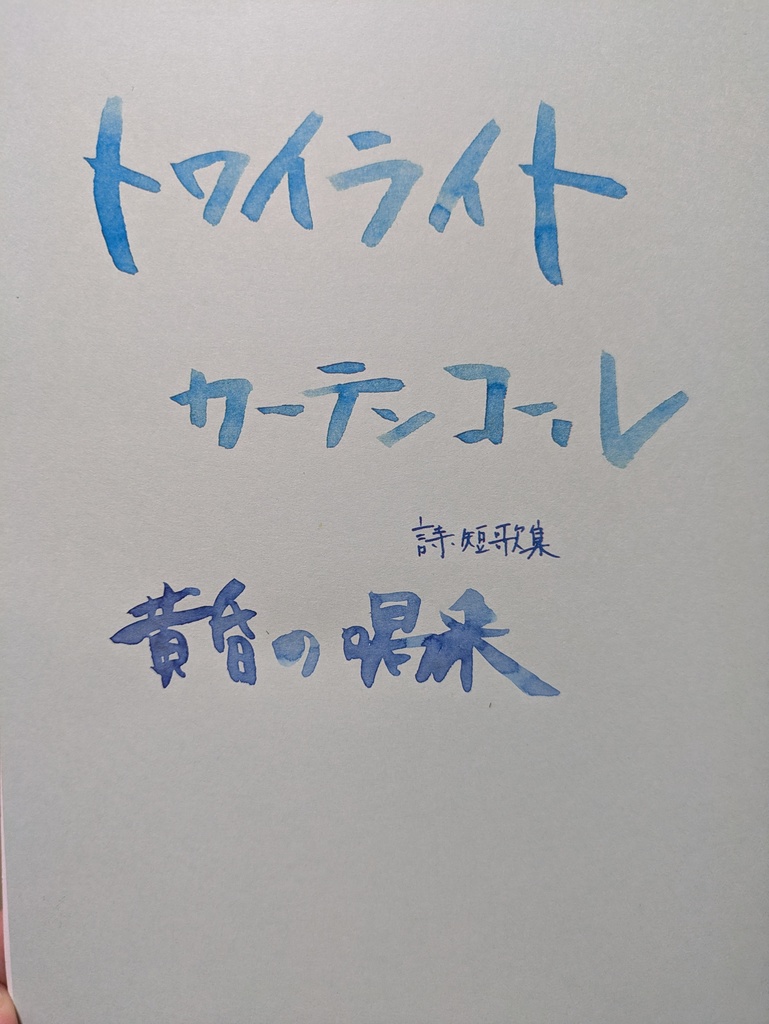 トワイライト
カーテンコール
詩・短歌集
黄昏の喝采